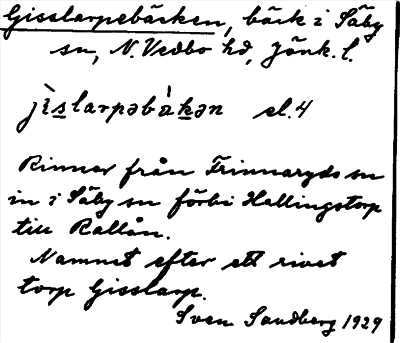 Gisslarpebäcken, bäck i Säby
sn, N. Vedbo hd, Jönk. l.
jìslarpəbàkən el. 4
Rinner från Frinnaryds sn
in i Säby sn förbi Hallingstorp
till Rallån.
Namnet efter ett rivet
torp Gisslarp.
Sven Sandberg 1929